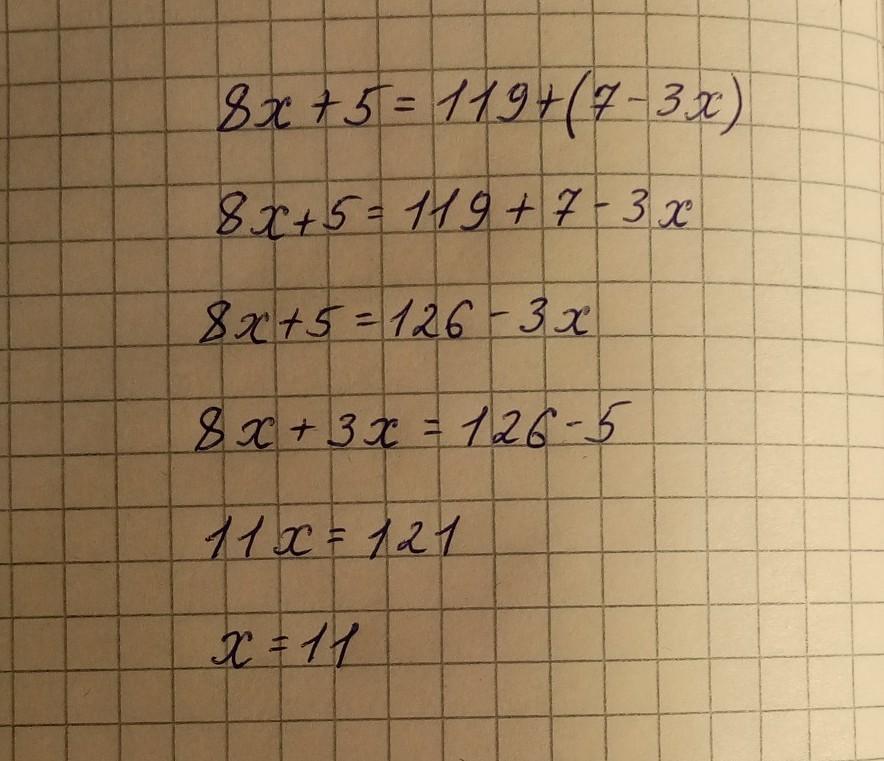 8x+5=119+(7-3x)
8x+5=119+7-3x
8x+5=126-3x
8x+3x=126-5
11x=121
x=11